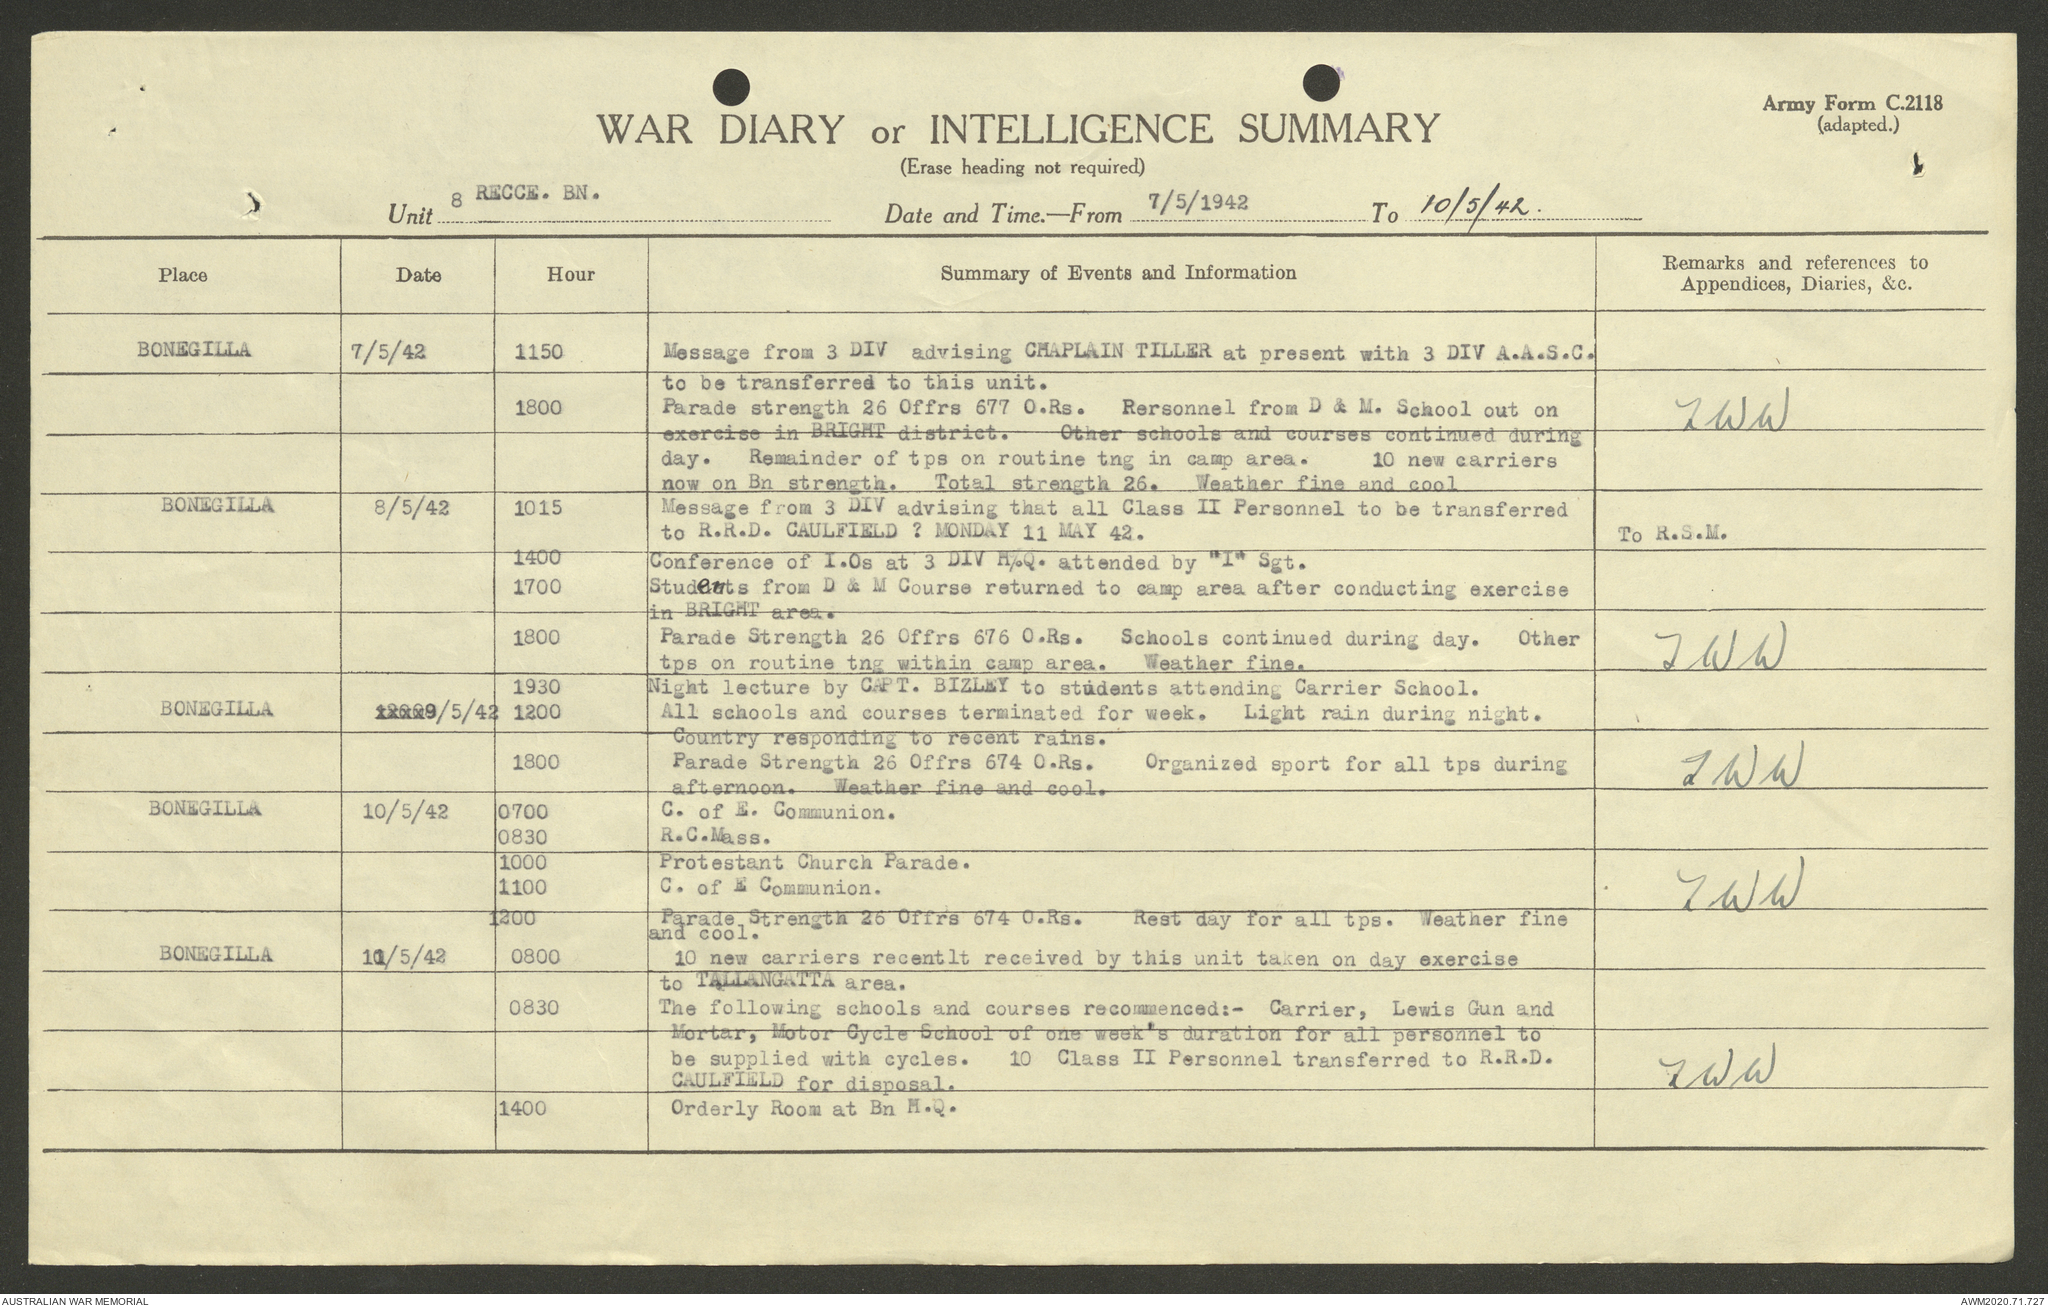 Army Form C.2118
(adapted.)
WAR DIARY or INTELLIGENCE SUMMARY
(Erase heading not required)
Unit 8 RECCE. BN. Date and Time.—From 7/5/1942 To 10/5/42.
Place Date Hour Summary of Events and Information Remarks and references to
Appendices, Diaries, &c.
BONEGILLA 7/5/42 1150 Message from 3 DIV advising CHAPLAIN TILLER at present with 3 DIV A.A.S.C.
to be transferred to this unit.
1800 Parade strength 26 Offrs 677 O.Rs. Rersonnel from D & M. School out on
exercise in BRIGHT district. Other schools and courses continued during
day. Remainder of tps on routine tng in camp area. 10 new carriers
now on Bn strength. Total strength 26. Weather fine and cool
BONEGILLA 8/5/42 1015 Message from 3 DIV advising that all Class II Personnel to be transferred
to R.R.D. CAULFIELD ? MONDAY 11 MAY 42. To R.S.M.
1400 Conference of I.Os at 3 DIV H.Q. attended by "I" Sgt.
1700 Students from D & M Course returned to camp area after conducting exercise
in BRIGHT area.
1800 Parade Strength 26 Offrs 676 O.Rs. Schools continued during day. Other
tps on routine tng within camp area. Weather fine.
1930 Night lecture by CAPT. BIZLEY to students attending Carrier School.
BONEGILLA 9/5/42 1200 All schools and courses terminated for week. Light rain during night.
Country responding to recent rains.
1800 Parade Strength 26 Offrs 674 O.Rs. Organized sport for all tps during
afternoon. Weather fine and cool.
BONEGILLA 10/5/42 0700 C. of E. Communion.
0830 R.C.Mass.
1000 Protestant Church Parade.
1100 C. of E Communion.
1200 Parade Strength 26 Offrs 674 O.Rs. Rest day for all tps. Weather fine
and cool.
BONEGILLA 11/5/42 0800 10 new carriers recentlt received by this unit taken on day exercise
to TALLANGATTA area.
0830 The following schools and courses recommenced:- Carrier, Lewis Gun and
Mortar, Motor Cycle School of one week's duration for all personnel to
be supplied with cycles. 10 Class II Personnel transferred to R.R.D.
CAULFIELD for disposal.
1400 Orderly Room at Bn H.Q.
AUSTRALIAN WAR MEMORIAL AWM2020.71.727